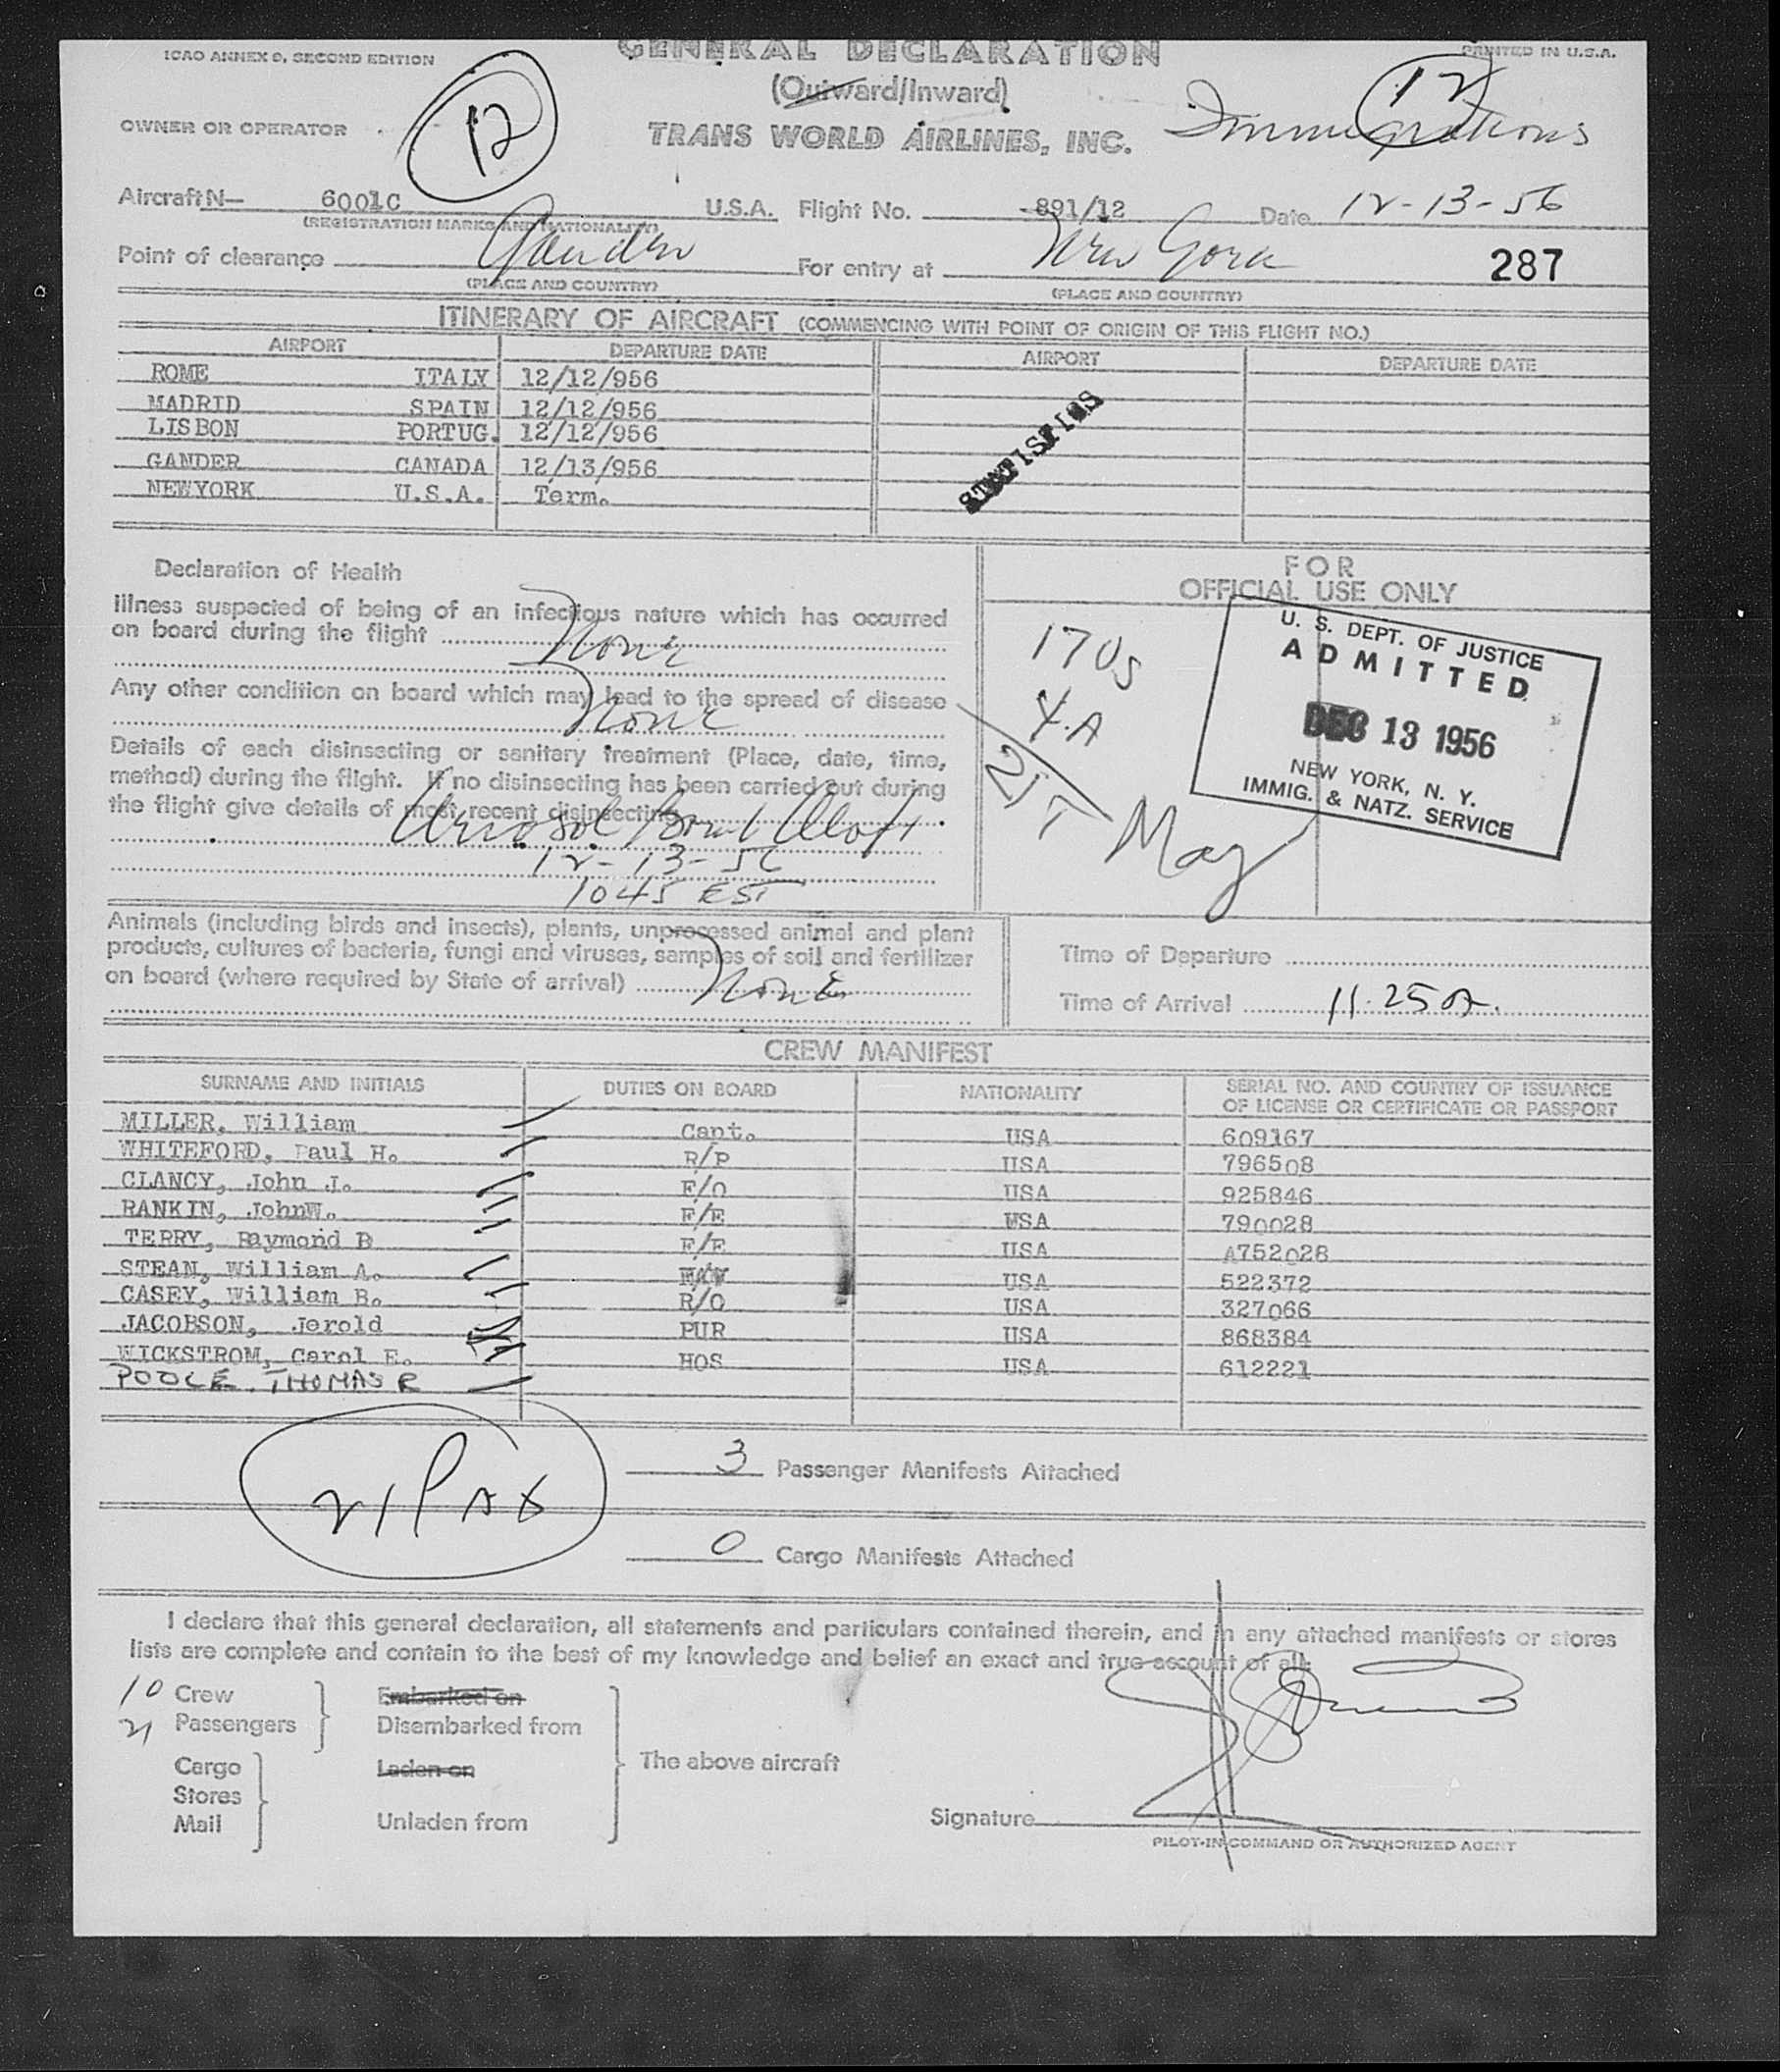 ICAO ANNEX 9, SECOND EDITION
GENERAL DECLARATION
PRINTED IN U.S.A.
(Outward/Inward)
12
12
OWNER OR OPERATOR
TRANS WORLD AIRLINES, INC.
Immigrations
Aircraft N— 6001C U.S.A. Flight No. -891/12 Date 12-13-56
(REGISTRATION MARKS AND NATIONALITY)
Point of clearance Gander For entry at New York 287
(PLACE AND COUNTRY) (PLACE AND COUNTRY)
ITINERARY OF AIRCRAFT (COMMENCING WITH POINT OF ORIGIN OF THIS FLIGHT NO.)
AIRPORT DEPARTURE DATE AIRPORT DEPARTURE DATE
ROME ITALY 12/12/956
MADRID SPAIN 12/12/956
LISBON PORTUG. 12/12/956
GANDER CANADA 12/13/956
NEWYORK U.S.A. Term.
STATISTICS
Declaration of Health
Illness suspected of being of an infectious nature which has occurred
on board during the flight None
Any other condition on board which may lead to the spread of disease
None
Details of each disinsecting or sanitary treatment (Place, date, time,
method) during the flight. If no disinsecting has been carried out during
the flight give details of most recent disinsecting
Aerosol Bomb Aloft
12-13-56
1045 EST
FOR
OFFICIAL USE ONLY
U. S. DEPT. OF JUSTICE
ADMITTED
DEC 13 1956
NEW YORK, N. Y.
IMMIG. & NATZ. SERVICE
17 US
4 A
21
May
Animals (including birds and insects), plants, unprocessed animal and plant
products, cultures of bacteria, fungi and viruses, samples of soil and fertilizer
on board (where required by State of arrival) None
Time of Departure
Time of Arrival 11.25 A.
CREW MANIFEST
SURNAME AND INITIALS DUTIES ON BOARD NATIONALITY SERIAL NO. AND COUNTRY OF ISSUANCE
OF LICENSE OR CERTIFICATE OR PASSPORT
MILLER, William Capt. USA 609167
WHITEFORD, Paul H. R/P USA 796508
CLANCY, John J. F/O USA 925846
RANKIN, JohnW. F/E USA 790028
TERRY, Raymond B F/E USA A752028
STEAN, William A. USA 522372
CASEY, William B. R/O USA 327066
JACOBSON, Jerold PUR USA 868384
WICKSTROM, Carol E. HOS USA 612221
POOLE, THOMAS R
21 PAX
3 Passenger Manifests Attached
0 Cargo Manifests Attached
I declare that this general declaration, all statements and particulars contained therein, and in any attached manifests or stores
lists are complete and contain to the best of my knowledge and belief an exact and true account of all:
10 Crew Embarked on
21 Passengers Disembarked from
Cargo Laden on The above aircraft
Stores
Mail Unladen from
Signature
PILOT-IN-COMMAND OR AUTHORIZED AGENT